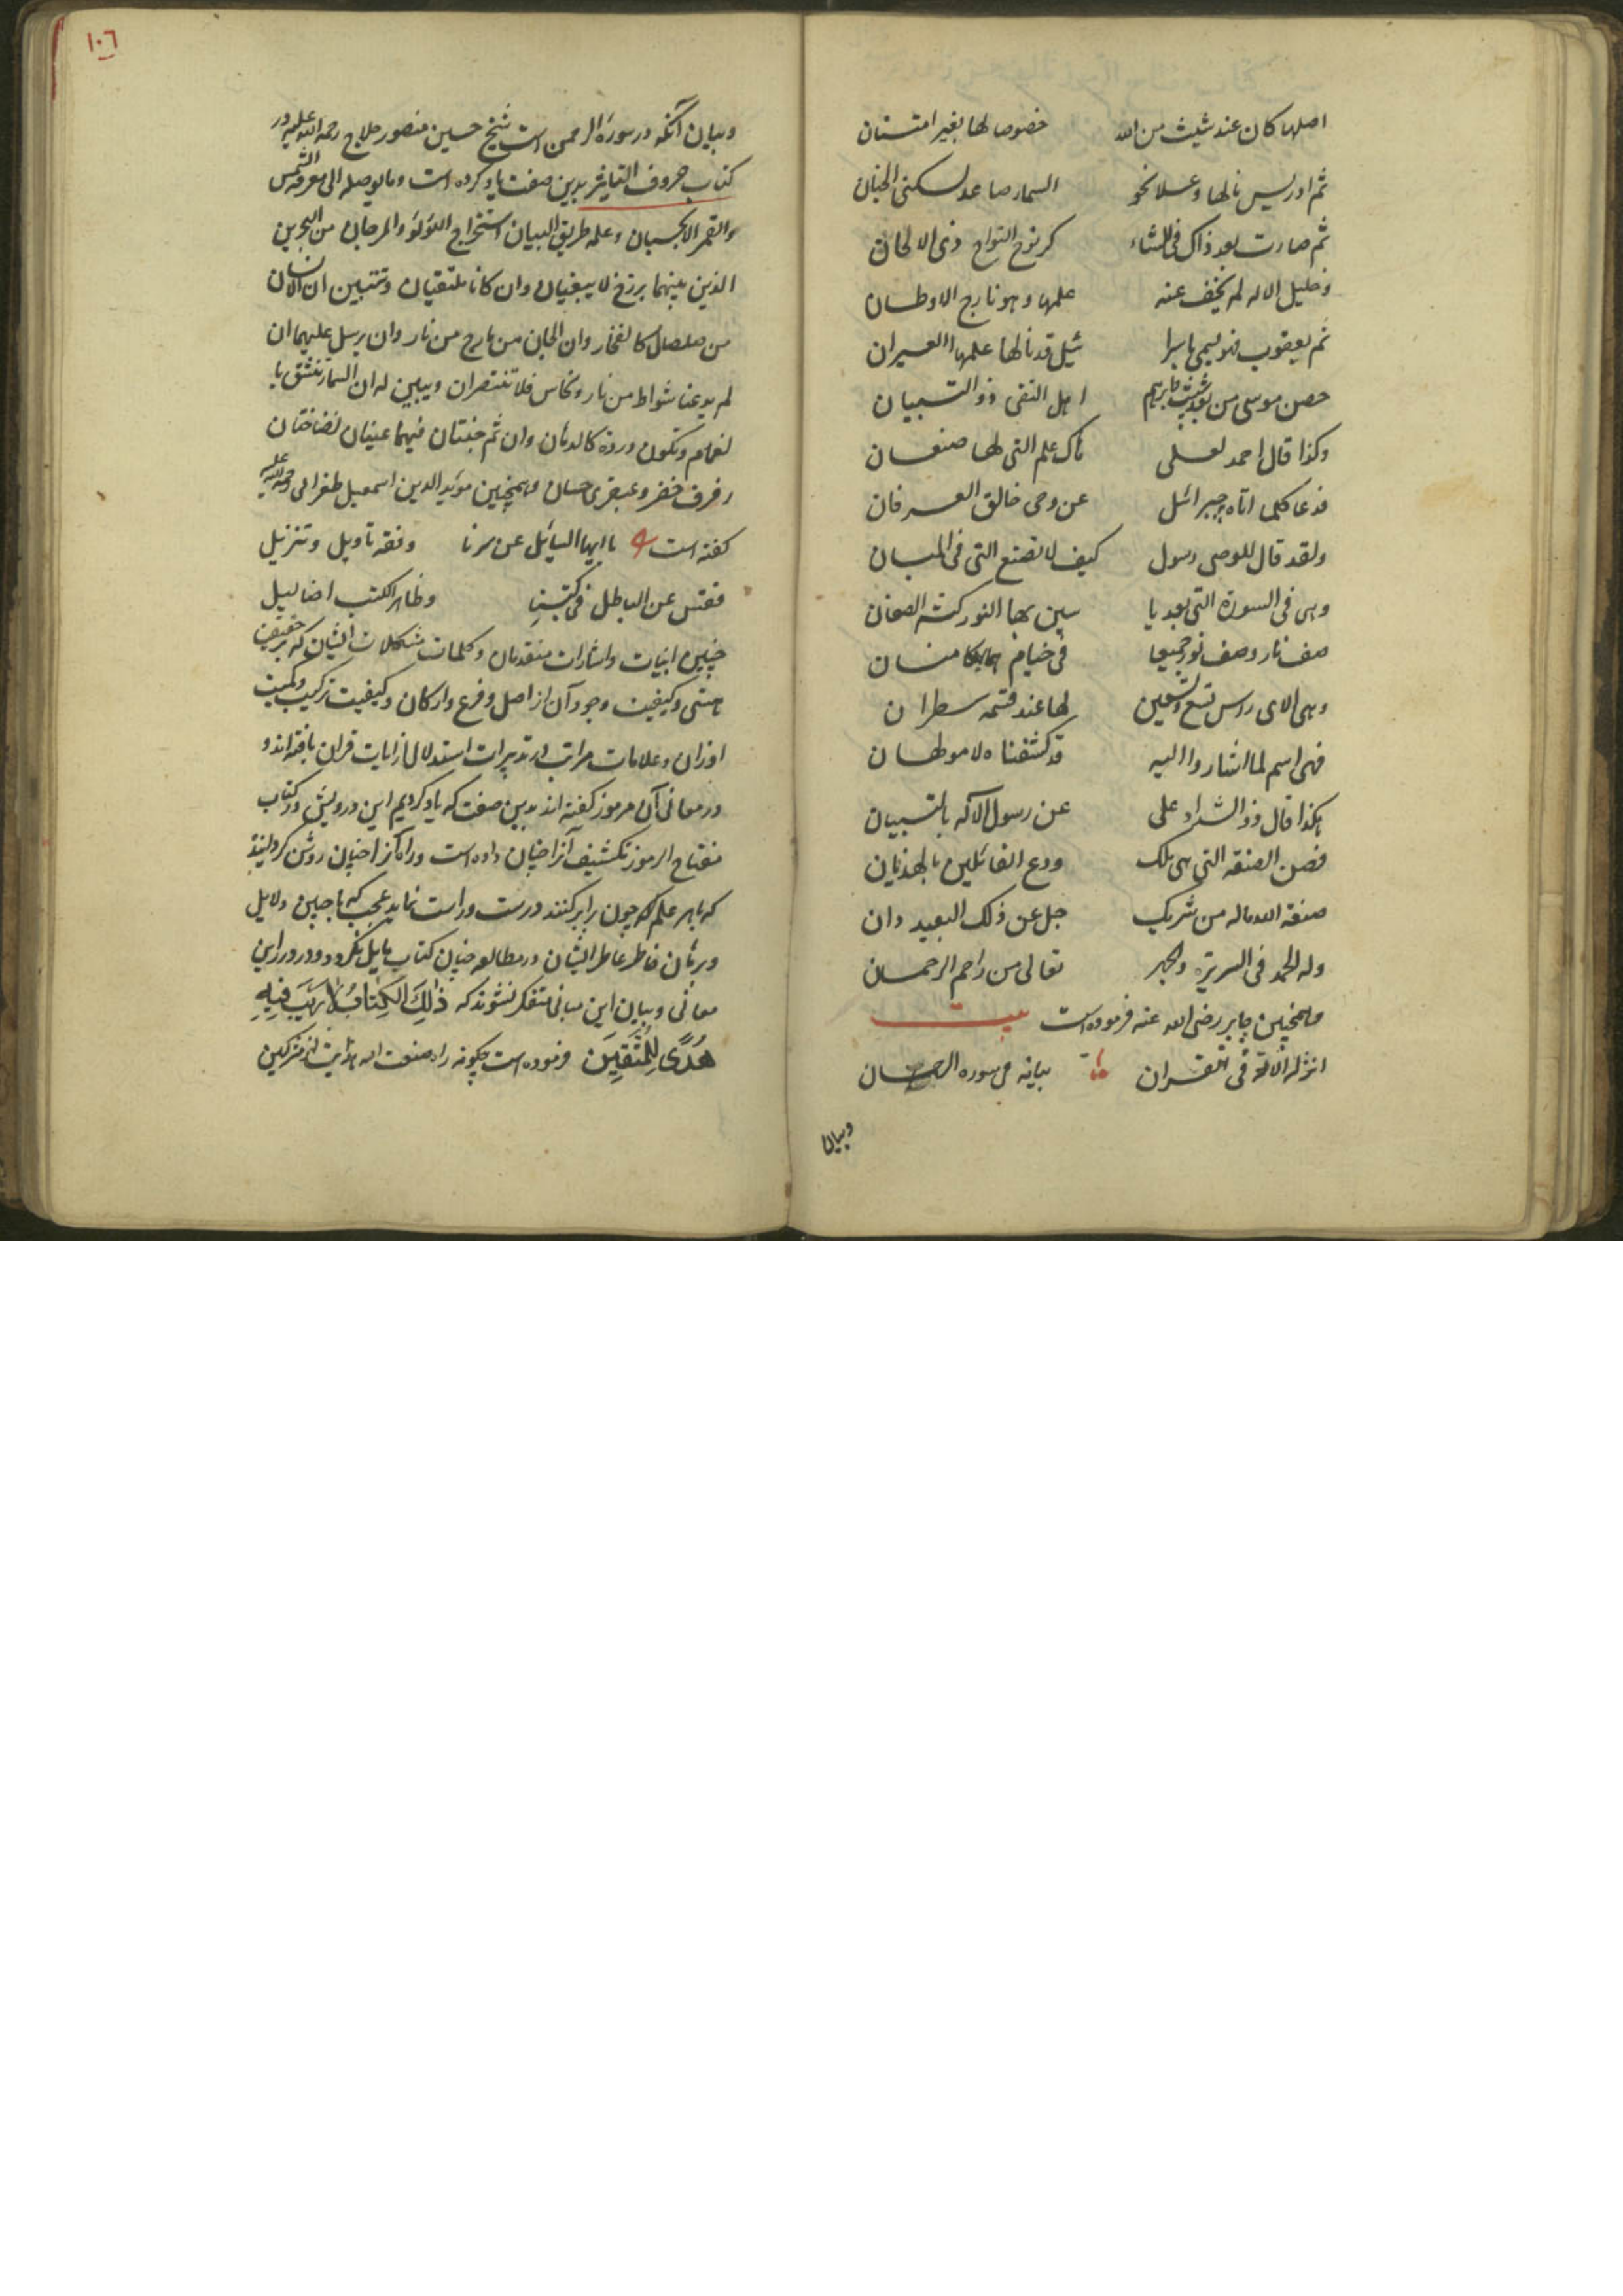 اصلها كان عند شيث من الله خصوصا لها بغير امتنان
ثم ادريس نالها وعلا نحو السما صاعد لسكنى الجنان
ثم صارت بعد ذاك فى الانشاء كرنوح النواح ذى الالحان
وخليل الاله لم يخف عنه علمها وهو نازح الاوطان
ثم يعقوب فهو يسمى باسرا ئيل قد نالها علمها العيران
حصن موسى من بعد شيث وابرهم اهل التقى ذو التبيان
وكذا قال احمد لعلى تاك علم التى لها صنعان
فدعا كلما اتاه جبرائيل عن وحى خالق العرفان
ولقد قال للوصى رسول كيف لا تصنع التى فى المبان
وهى فى السورة التى بعد يا سين بها النور كنه الصفان
صف نار وصف نور جميعا فى خيام
وهى الاى راس تسع وتسعين لها عند قسمه سطران
فهى اسم لما اشاروا اليه قد كشفناه لا موطهان
هكذا قال ذو الشراد على عن رسول الاله بالتبيان
فصن الصنعة التى هى تلك ودع القائلين بالهذيان
صنعة الله ماله من شريك جل عن ذلك البعيد دان
وله الحمد فى السريرة والجهر تعالى من راحم الرحمان
وهمچنين جابر رضى الله عنه فرموده است بيت
انزله الاله فى القران بيانه فى سوره الرحمان
وبيان
١٠٦
وبيان آنكه در سورة الرحمن است شيخ حسين منصور حلاج رحمة الله عليه در
كتاب حروف التياثر بدين صفت ياد كرده است وما يوصله الى معرفة الشمس
والقمر الا بحسبان وعلمه طريق البيان استخراج اللؤلؤ والمرجان من البحرين
الذين بينهما برزخ لا يبغيان وان كانا ملتقيان وتتبين ان الانسان
من صلصال كالفخار وان الجان من مارج من نار وان يرسل عليهما ان
لم يدعنا شواظ من نار ونحاس فلا تنتصران ويبين له ان السما تنشق با
لغمام وتكون وردة كالدهان وان ثم جنتان فيهما عينان نضاختان
رفرف خضر وعبقرى حسان وهمچنين مويد الدين اسمعيل طغرائى رحمة الله عليه
كفته است يا ايها السائل عن سرنا وفقه تاويل وتنزيل
ففتش عن الباطن فى كتبنا وظاهر الكتب اضاليل
چنين ابيات واشارات متقدمان وكلمات مشكلات ايشان كه بر حقيقت
هستى وكيفيت وجود آن از اصل وفرع واركان وكيفيت تركيب وكميت
اوزان وعلامات مراتب در تدبيرات استدلال از ايات قران يافته اند و
در معانى آن مرموز كفته اند بدين صفت كه ياد كرديم اين درويش در كتاب
مفتاح الرموز تكشيف آنرا چنان داده است وراه آنرا چنان روشن كردانيد
كه باهر علم كه چون برابر كنند درست وراست نمايد عجب كه با چنين دلايل
وبرهان خاطر عاطر ايشان در مطالعه چنان كتاب مايل نكردد ودر ورزاين
معانى وبيان اين مبانى متفكر نشوند كه ذٰلِكَ الكِتَابُ لا رَيْبَ فِيهِ
هُدًى لِلْمُتَّقِينَ فرموده است چكونه راه صنعت اله هدايت از مشركين